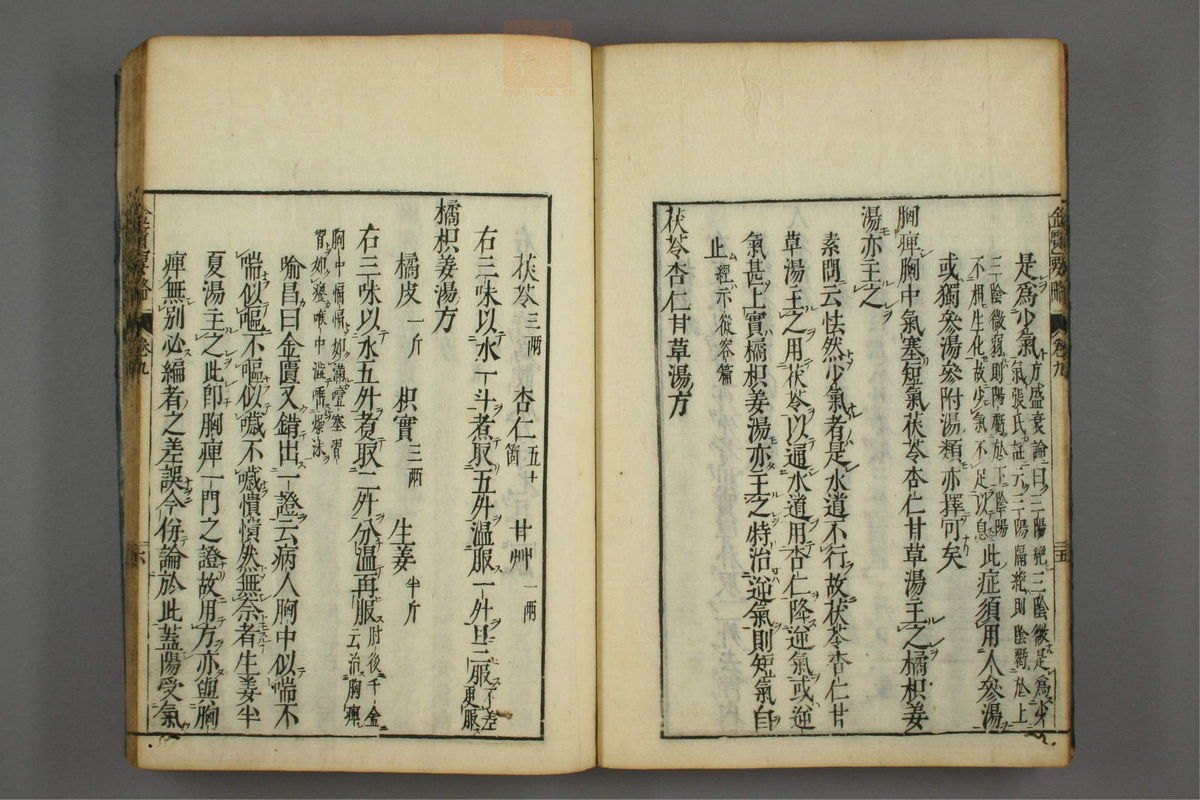 金匱要略 卷九 五
是爲少氣方盛衰論曰三陽絶三陰微是爲少氣張氏註云三陽隔絶則陰虧於上三陰微弱則陽虧於下陰陽不相生化故少氣不足以息此症須用人參湯
或獨參湯參附湯類亦擇可矣
胸痺胸中氣塞短氣茯苓杏仁甘草湯主之橘枳姜
湯亦主之
素問云怯然少氣者是水道不行故茯苓杏仁甘
草湯主之用茯苓以通水道用杏仁降逆氣或逆
氣甚上實橘枳姜湯亦主之特治逆氣則短氣自
止經示從容篇
茯苓杏仁甘草湯方
茯苓三兩 杏仁五十箇 甘艸一兩
右三味以水一斗煮取五升温服一升日三服不差更服
橘枳姜湯方
橘皮一斤 枳實三兩 生姜半斤
右三味以水五升煮取二升分温再服肘後千金云治胸痺
胸中愊愊如滿噎塞習習如癢喉中澁唾燥沫
喻昌曰金匱又錯出一證云病人胸中似喘不
喘似嘔不嘔似噦不噦憒憒然無奈者生姜半
夏湯主之此卽胸痺一門之證故用方亦與胸
痺無別必編者之差誤今併論於此蓋陽受氣
金匱要略 卷九 六